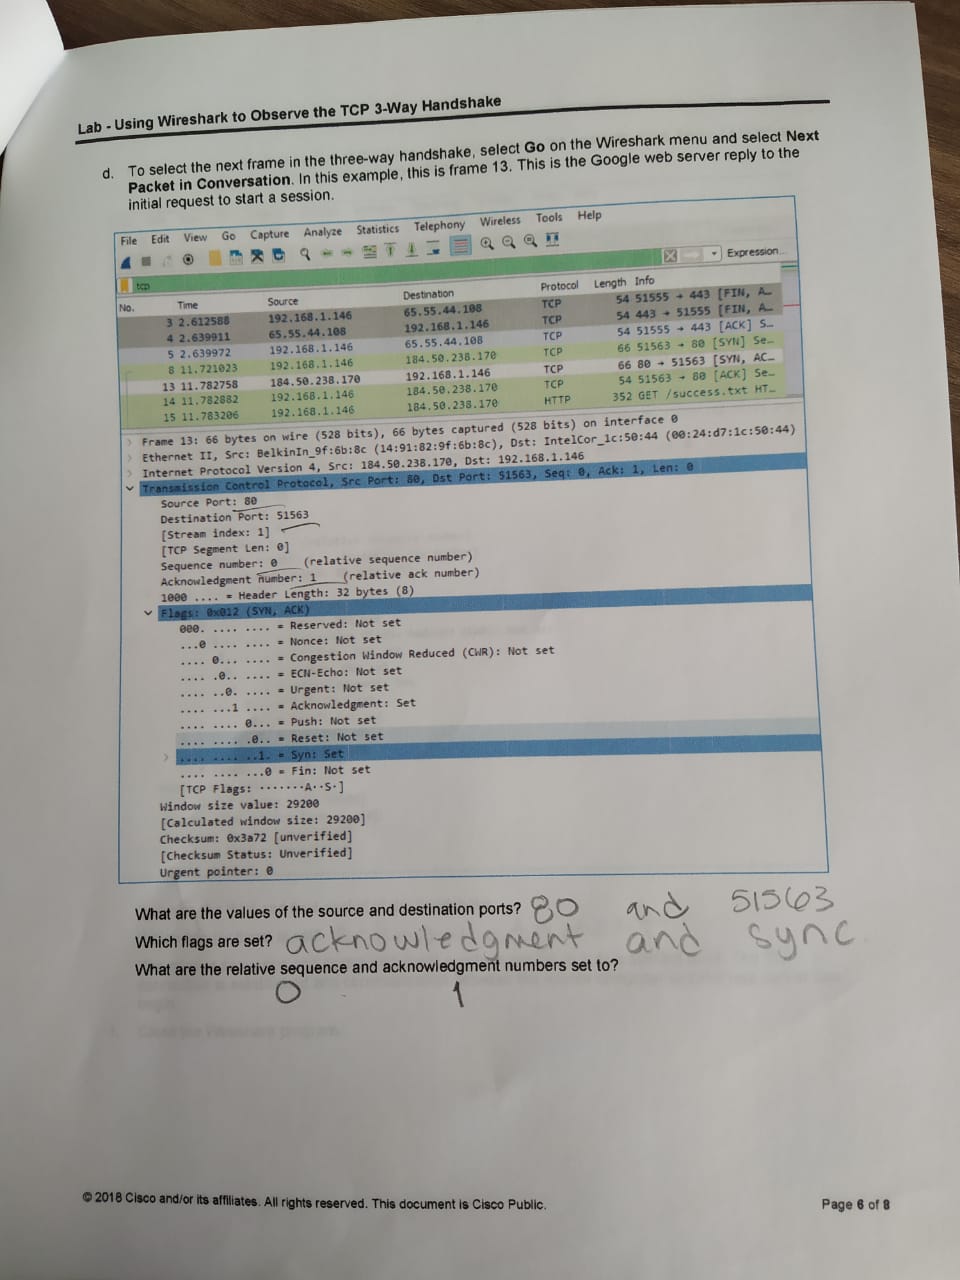 Lab - Using Wireshark to Observe the TCP 3-Way Handshake
d. To select the next frame in the three-way handshake, select Go on the Wireshark menu and select Next
Packet in Conversation. In this example, this is frame 13. This is the Google web server reply to the
initial request to start a session.
File Edit View Go Capture Analyze Statistics Telephony Wireless Tools Help
tcp Expression...
No. Time Source Destination Protocol Length Info
3 2.612588 192.168.1.146 65.55.44.108 TCP 54 51555 → 443 [FIN, A…
4 2.639911 65.55.44.108 192.168.1.146 TCP 54 443 → 51555 [FIN, A…
5 2.639972 192.168.1.146 65.55.44.108 TCP 54 51555 → 443 [ACK] S…
8 11.721023 192.168.1.146 184.50.238.170 TCP 66 51563 → 80 [SYN] Se…
13 11.782758 184.50.238.170 192.168.1.146 TCP 66 80 → 51563 [SYN, AC…
14 11.782882 192.168.1.146 184.50.238.170 TCP 54 51563 → 80 [ACK] Se…
15 11.783206 192.168.1.146 184.50.238.170 HTTP 352 GET /success.txt HT…
Frame 13: 66 bytes on wire (528 bits), 66 bytes captured (528 bits) on interface 0
Ethernet II, Src: BelkinIn_9f:6b:8c (14:91:82:9f:6b:8c), Dst: IntelCor_1c:50:44 (00:24:d7:1c:50:44)
Internet Protocol Version 4, Src: 184.50.238.170, Dst: 192.168.1.146
Transmission Control Protocol, Src Port: 80, Dst Port: 51563, Seq: 0, Ack: 1, Len: 0
Source Port: 80
Destination Port: 51563
[Stream index: 1]
[TCP Segment Len: 0]
Sequence number: 0 (relative sequence number)
Acknowledgment number: 1 (relative ack number)
1000 .... = Header Length: 32 bytes (8)
Flags: 0x012 (SYN, ACK)
000. .... .... = Reserved: Not set
...0 .... .... = Nonce: Not set
.... 0... .... = Congestion Window Reduced (CWR): Not set
.... .0.. .... = ECN-Echo: Not set
.... ..0. .... = Urgent: Not set
.... ...1 .... = Acknowledgment: Set
.... .... 0... = Push: Not set
.... .... .0.. = Reset: Not set
.... .... ..1. = Syn: Set
.... .... ...0 = Fin: Not set
[TCP Flags: ·······A··S·]
Window size value: 29200
[Calculated window size: 29200]
Checksum: 0x3a72 [unverified]
[Checksum Status: Unverified]
Urgent pointer: 0
What are the values of the source and destination ports? 80 and 51563
Which flags are set? acknowledgment and sync
What are the relative sequence and acknowledgment numbers set to?
0 1
© 2018 Cisco and/or its affiliates. All rights reserved. This document is Cisco Public. Page 6 of 8